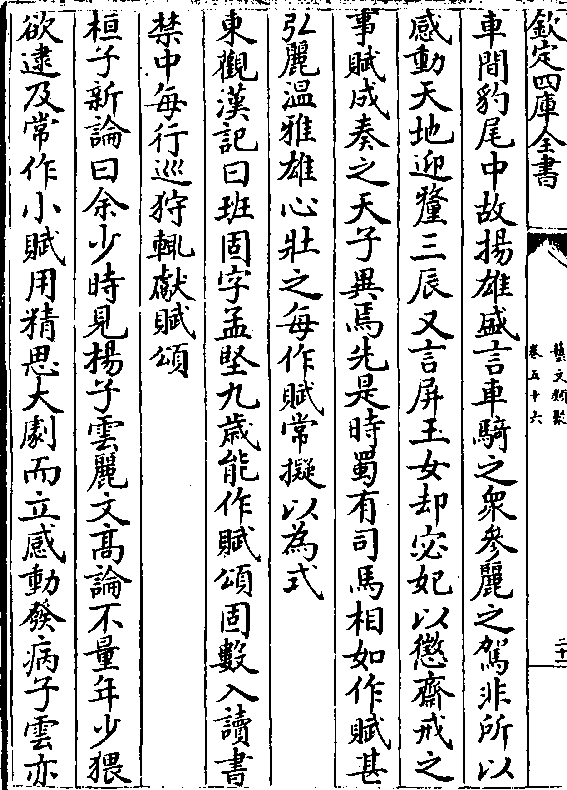 欽定四庫全書
藝文類聚
卷五十六
二十一
車間豹尾中故揚雄盛言車騎之衆參麗之駕非所以
感動天地迎釐三辰又言屏玉女却宓妃以懲齋戒之
事賦成奏之天子異焉先是時蜀有司馬相如作賦甚
弘麗温雅雄心壯之每作賦常擬以為式
東觀漢記曰班固字孟堅九歳能作賦頌固數入讀書
禁中每行巡狩輒獻賦頌
桓子新論曰余少時見揚子雲麗文高論不量年少猥
欲逮及常作小賦用精思大劇而立感動發病子雲亦